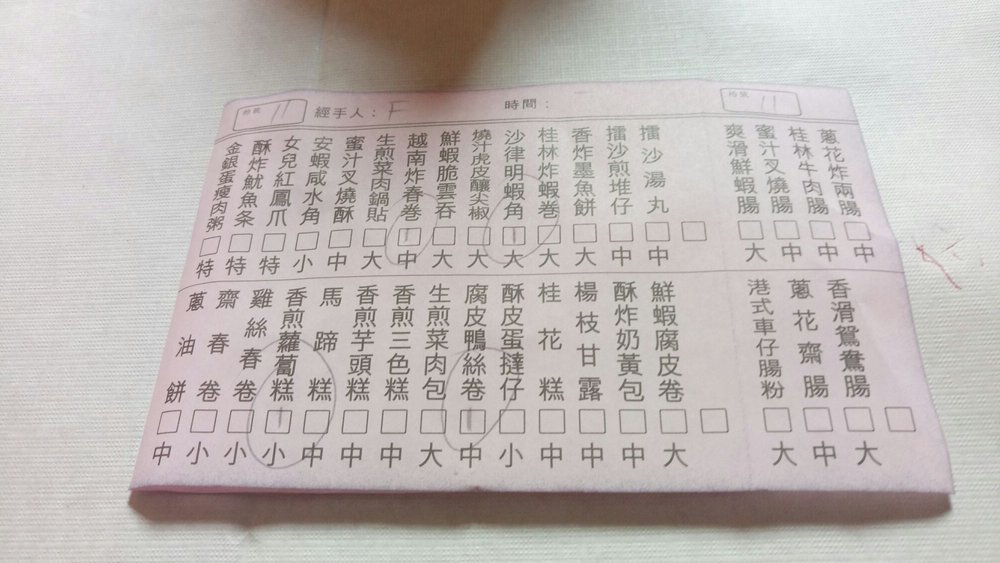 枱號 11
經手人：F
時間：
枱號 11
蔥花炸兩腸 中
桂林牛肉腸 中
蜜汁叉燒腸 中
爽滑鮮蝦腸 大
擂沙湯丸 中
擂沙煎堆仔 中
香炸墨魚餅 大
桂林炸蝦卷 大
沙律明蝦角 1 大
燒汁虎皮釀尖椒 大
鮮蝦脆雲吞 大
越南炸春卷 1 中
生煎菜肉鍋貼 大
蜜汁叉燒酥 中
安蝦咸水角 小
女兒紅鳳爪 特
酥炸魷魚条 特
金銀蛋瘦肉粥 特
香滑鴛鴦腸 大
蔥花齋腸 中
港式車仔腸粉 大
鮮蝦腐皮卷 大
酥炸奶黃包 中
楊枝甘露 中
桂花糕 中
酥皮蛋撻仔 小
腐皮鴨絲卷 1 中
生煎菜肉包 大
香煎三色糕 中
香煎芋頭糕 中
馬蹄糕 中
香煎蘿蔔糕 1 小
雞絲春卷 小
齋春卷 小
蔥油餅 中